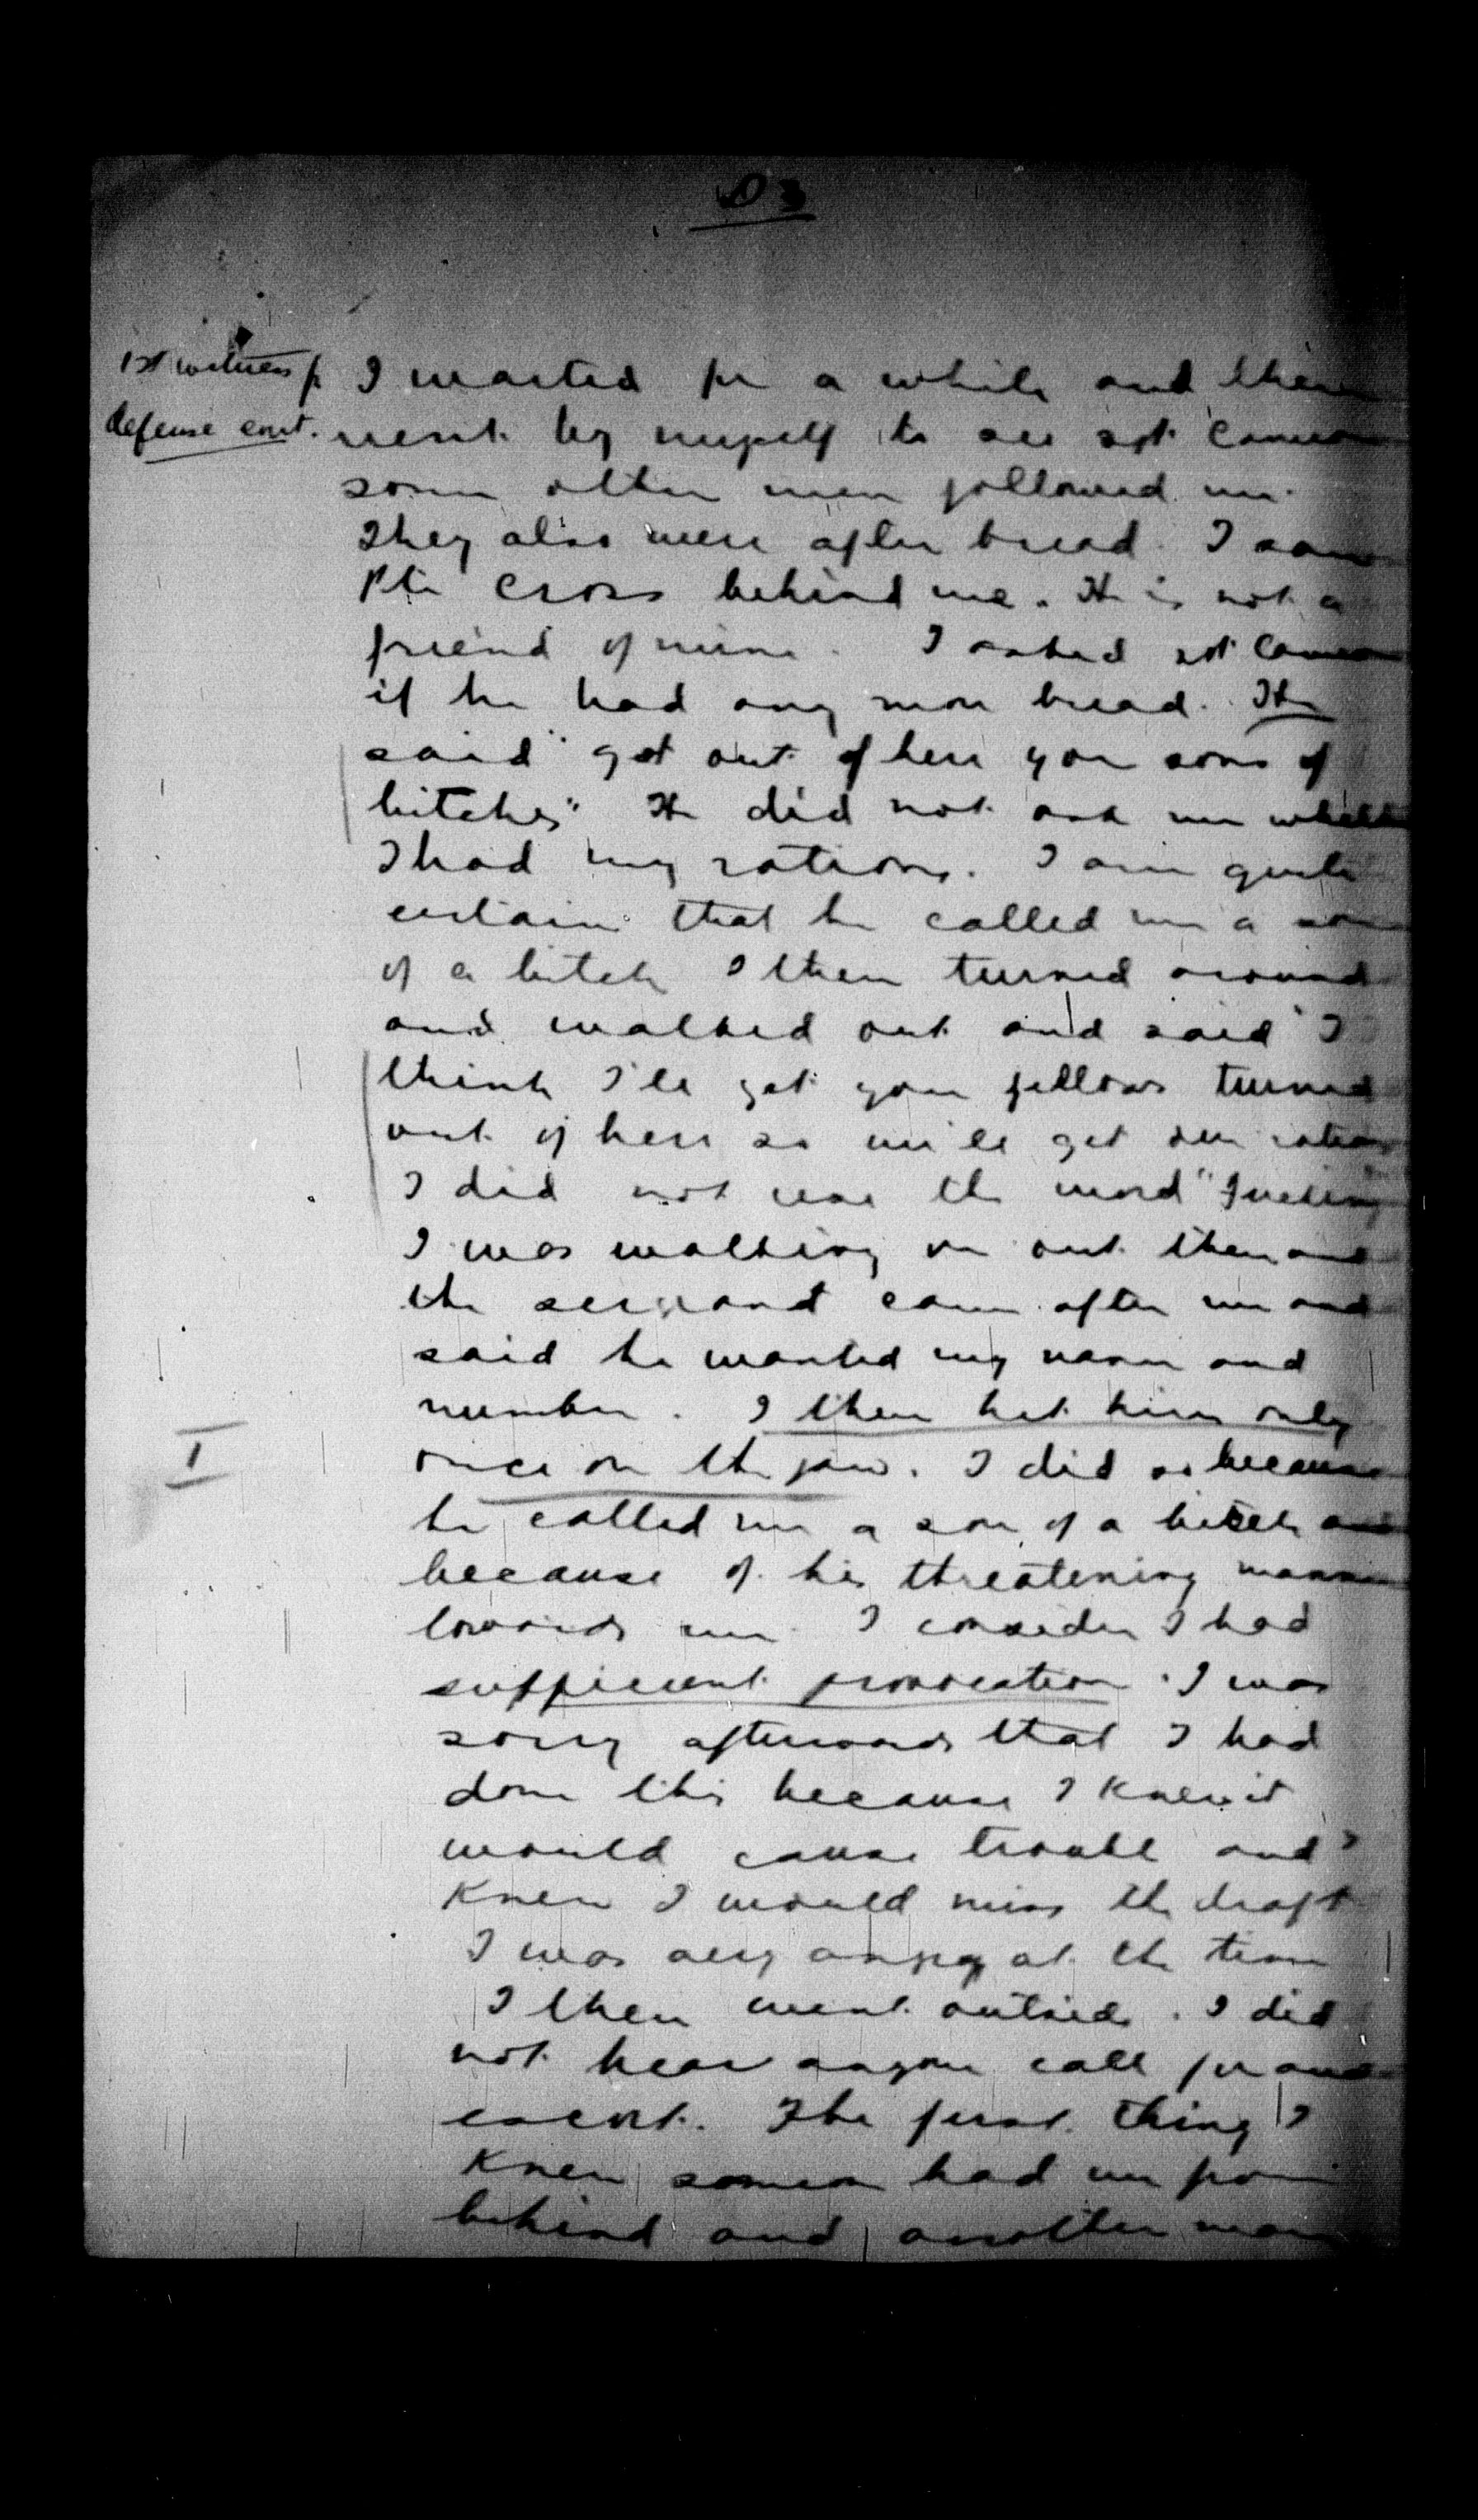 D3
1st witness for
defense cont.
I waited for a while and then
went by myself to see sgt Cameron
some other men followed me.
They also were after bread. I saw
Pte Cross behind me. He is not a
friend of mine. I asked sgt Cameron
if he had any more bread. He
said "get out of here you sons of
bitches" He did not ask me whether
I had my rations. I am quite
certain that he called me a son
of a bitch I then turned around
and walked out and said "I
think I'll get you fellows turned
out of here so we'll get our rations
I did not use the word "fucking"
I was walking on out then and
the sergeant came after me and
said he wanted my name and
number. I then hit him only
once on the jaw. I did so because
he called me a son of a bitch and
because of his threatening manner
towards me. I consider I had
sufficient provocation. I was
sorry afterwards that I had
done this because I knew it
would cause trouble and I
knew I would miss the draft
I was very angry at the time
I then went outside. I did
not hear anyone call for an
escort. The first thing I
knew someone had me from
behind and another man
I